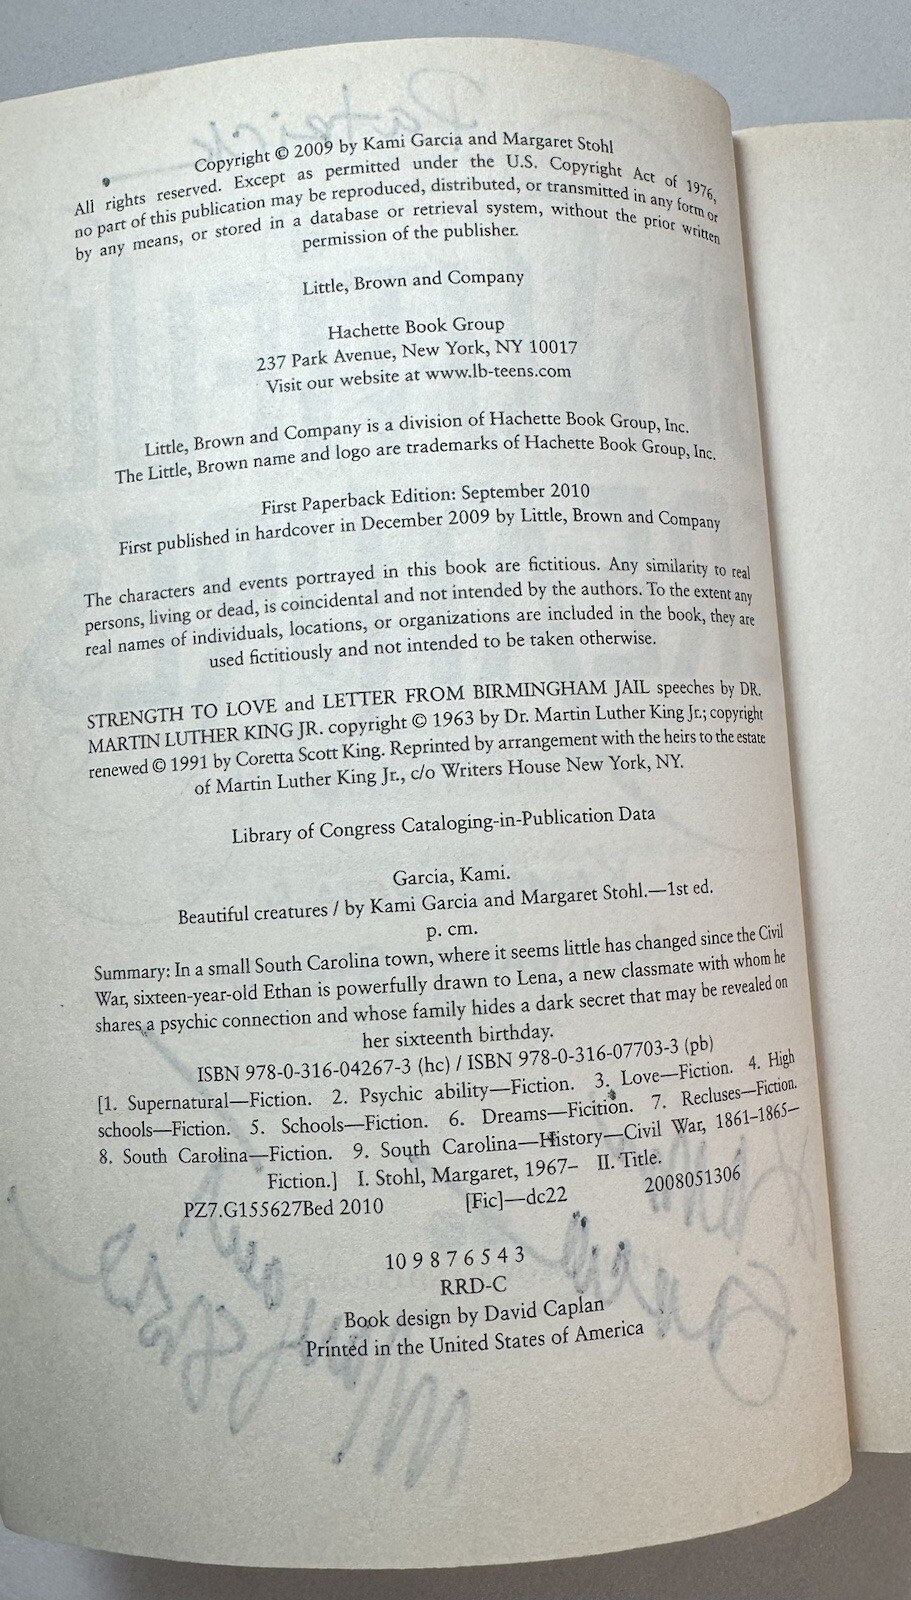 Patrick
Copyright © 2009 by Kami Garcia and Margaret Stohl
All rights reserved. Except as permitted under the U.S. Copyright Act of 1976,
no part of this publication may be reproduced, distributed, or transmitted in any form or
by any means, or stored in a database or retrieval system, without the prior written
permission of the publisher.
Little, Brown and Company
Hachette Book Group
237 Park Avenue, New York, NY 10017
Visit our website at www.lb-teens.com
Little, Brown and Company is a division of Hachette Book Group, Inc.
The Little, Brown name and logo are trademarks of Hachette Book Group, Inc.
First Paperback Edition: September 2010
First published in hardcover in December 2009 by Little, Brown and Company
The characters and events portrayed in this book are fictitious. Any similarity to real
persons, living or dead, is coincidental and not intended by the authors. To the extent any
real names of individuals, locations, or organizations are included in the book, they are
used fictitiously and not intended to be taken otherwise.
STRENGTH TO LOVE and LETTER FROM BIRMINGHAM JAIL speeches by DR.
MARTIN LUTHER KING JR. copyright © 1963 by Dr. Martin Luther King Jr.; copyright
renewed © 1991 by Coretta Scott King. Reprinted by arrangement with the heirs to the estate
of Martin Luther King Jr., c/o Writers House New York, NY.
Library of Congress Cataloging-in-Publication Data
Garcia, Kami.
Beautiful creatures / by Kami Garcia and Margaret Stohl.—1st ed.
p. cm.
Summary: In a small South Carolina town, where it seems little has changed since the Civil
War, sixteen-year-old Ethan is powerfully drawn to Lena, a new classmate with whom he
shares a psychic connection and whose family hides a dark secret that may be revealed on
her sixteenth birthday.
ISBN 978-0-316-04267-3 (hc) / ISBN 978-0-316-07703-3 (pb)
[1. Supernatural—Fiction. 2. Psychic ability—Fiction. 3. Love—Fiction. 4. High
schools—Fiction. 5. Schools—Fiction. 6. Dreams—Ficition. 7. Recluses—Fiction.
8. South Carolina—Fiction. 9. South Carolina—History—Civil War, 1861–1865—
Fiction.] I. Stohl, Margaret, 1967– II. Title.
PZ7.G155627Bed 2010 [Fic]—dc22 2008051306
10 9 8 7 6 5 4 3
RRD-C
Book design by David Caplan
Printed in the United States of America